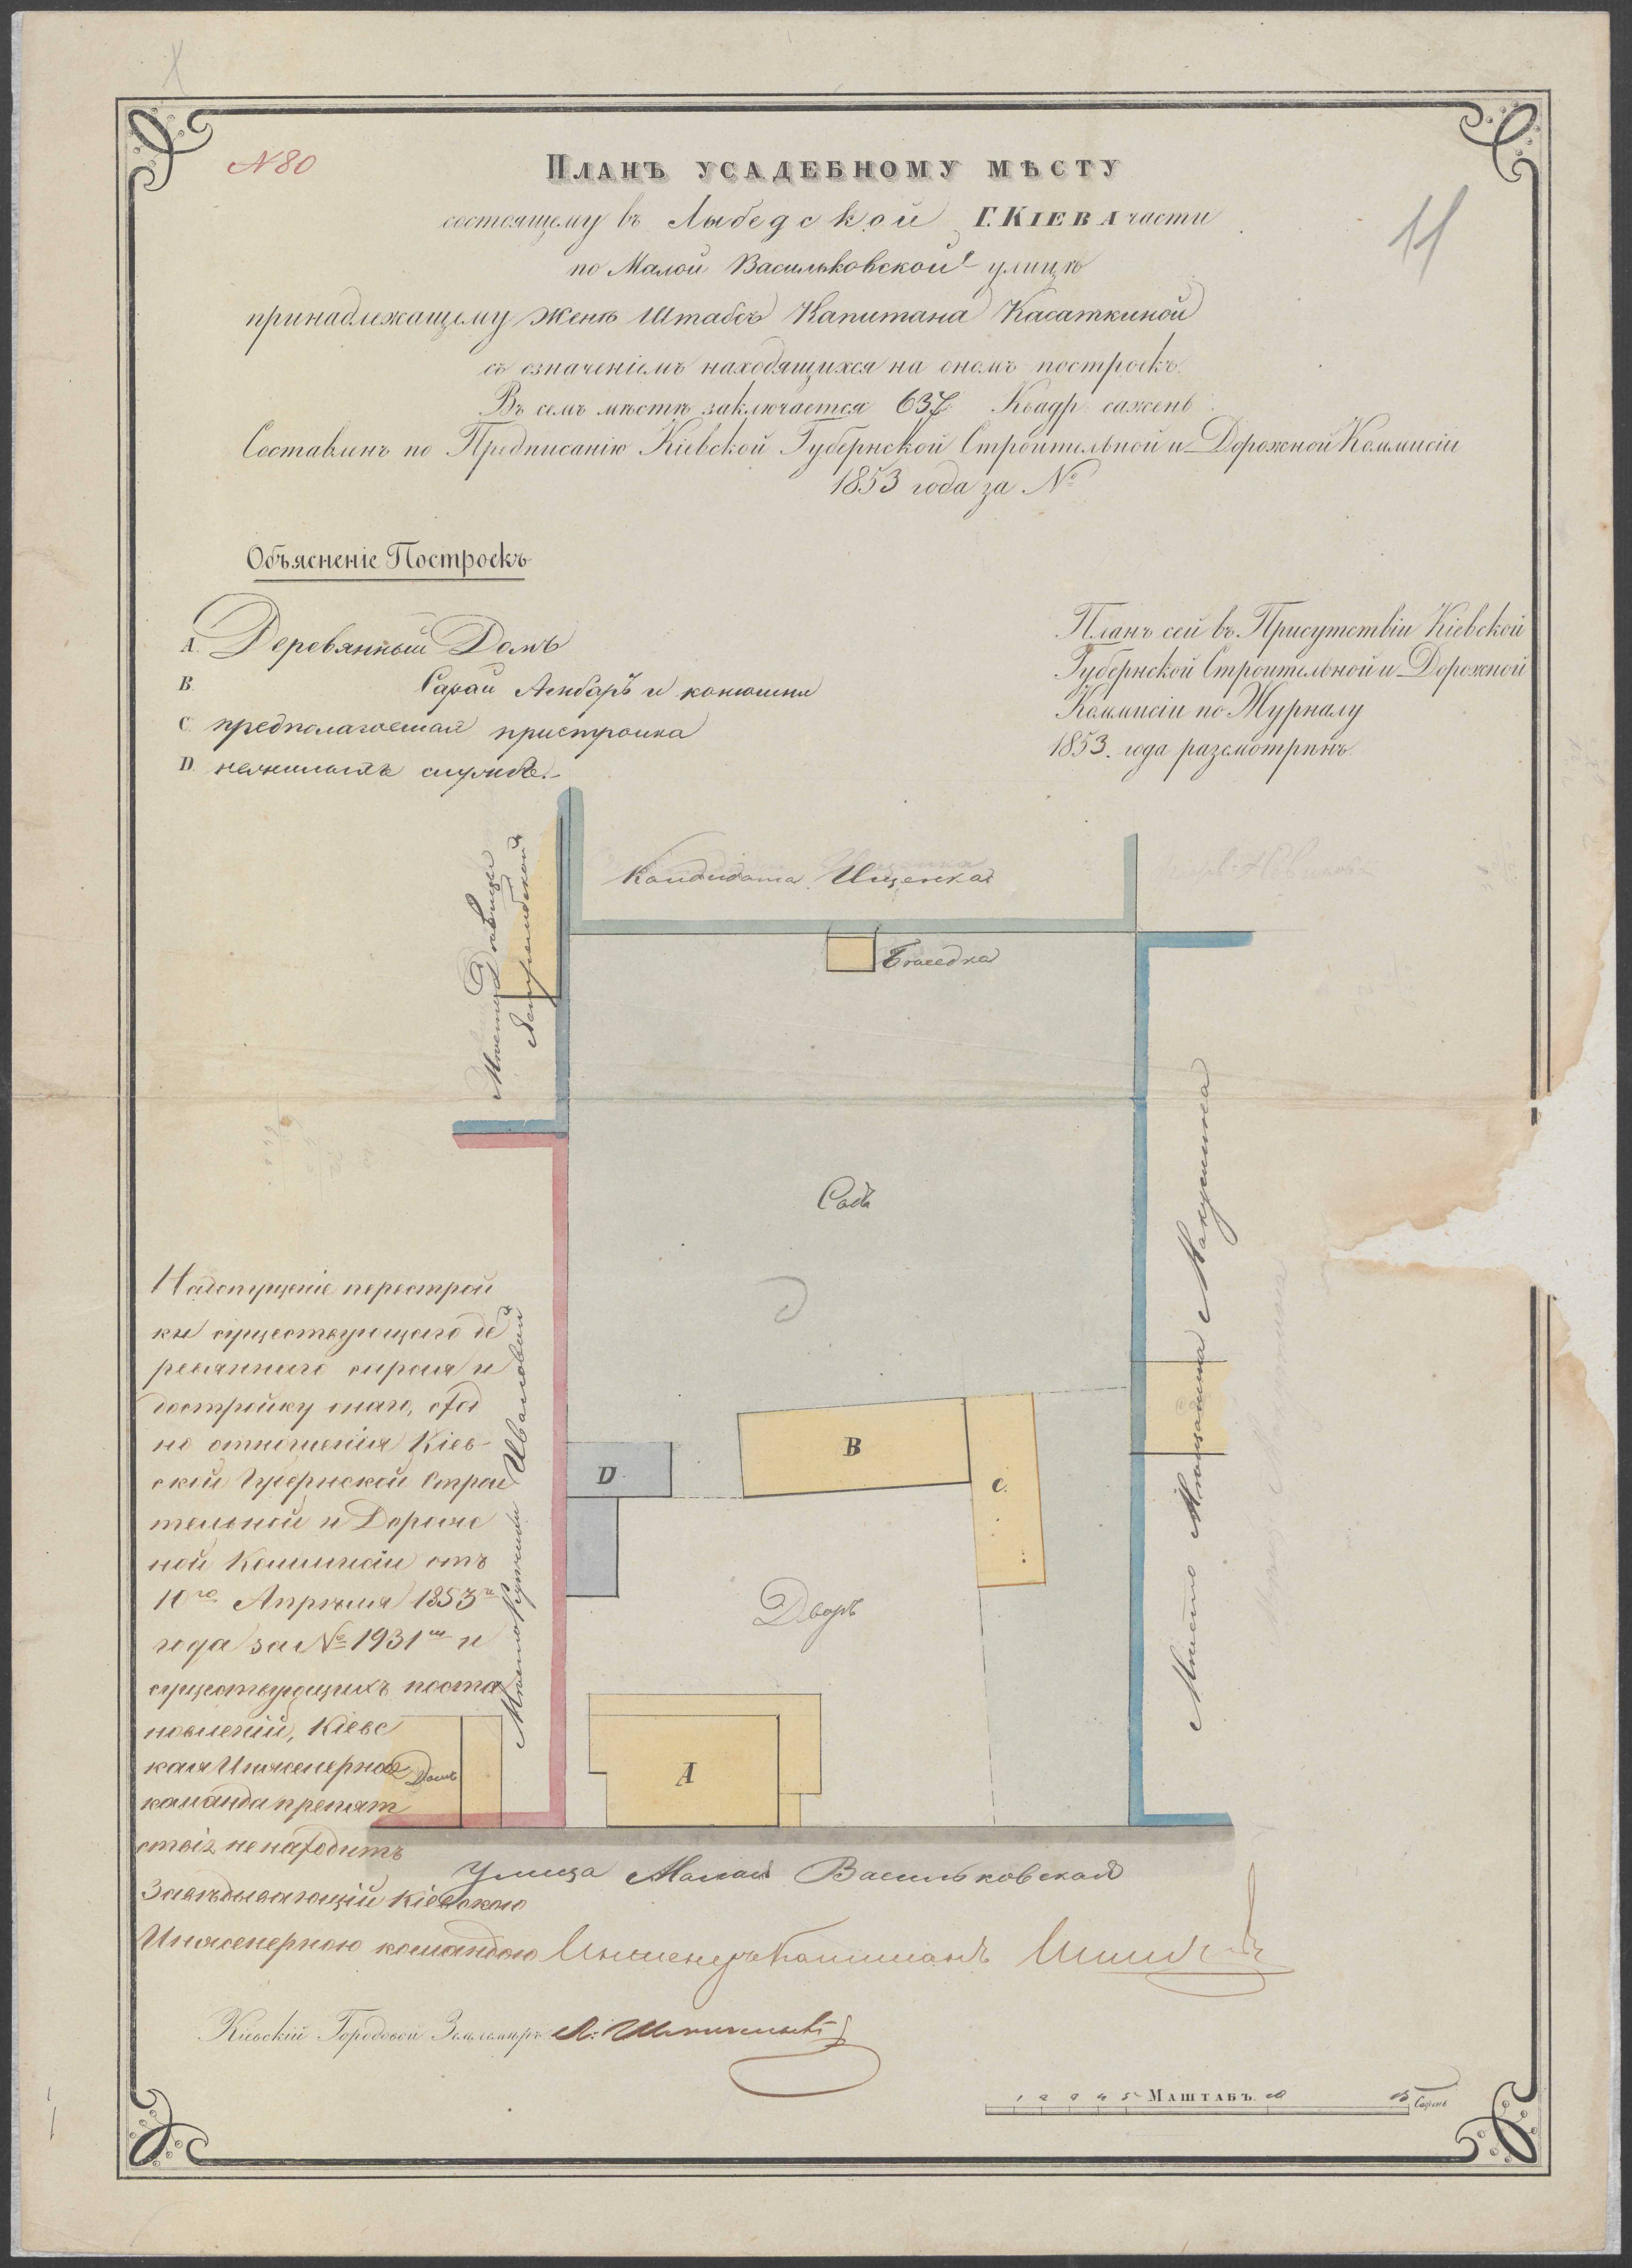 N 80
11
Планъ усадебному мѣсту
состоящему въ Лыбедской Г. Кіева части
по Малой Васильковской улицѣ
принадлежащему женѣ Штабсъ Капитана Касаткиной
съ означеніемъ находящихся на ономъ построекъ.
Въ семъ мѣстѣ заключается 637 Квадр. сажень
Составленъ по Предписанію Кіевской Губернской Строительной и Дорожной Коммисіи
1853 года за №
Объясненіе Построекъ
A. Деревянный Домъ
B. Сарай Анбаръ и конюшни
C. предполагаемая пристройка
D.
Планъ сей въ Присутствіи Кіевской
Губернской Строительной и Дорожной
Коммисіи по Журналу
1853. года разсмотрѣнъ.
Кандидата Ищенка
Бѣседка
Садъ
D
B
C.
Дворъ
A
Домъ
Мѣсто Мѣщанина
Улица Малая Васильковская
На допущеніе перестрой
ки существующаго де
ревяннаго сарая и
постройку онаго,
но отношенія Кіев-
ской Губернской Строи
тельной и Дорож
ной Коммисіи отъ
10го Апрѣля 1853го
года за № 1931м и
существующихъ поста
новленій, Кіевс
кая Инженерная
команда препят
ствія не находитъ
Завѣдывающій Кіевскою
Инженерною командою Инженеръ Капитанъ
Кіевскій Городовой Землемѣръ
1 2 3 4 5 Маштабъ. 10 15 Сажень